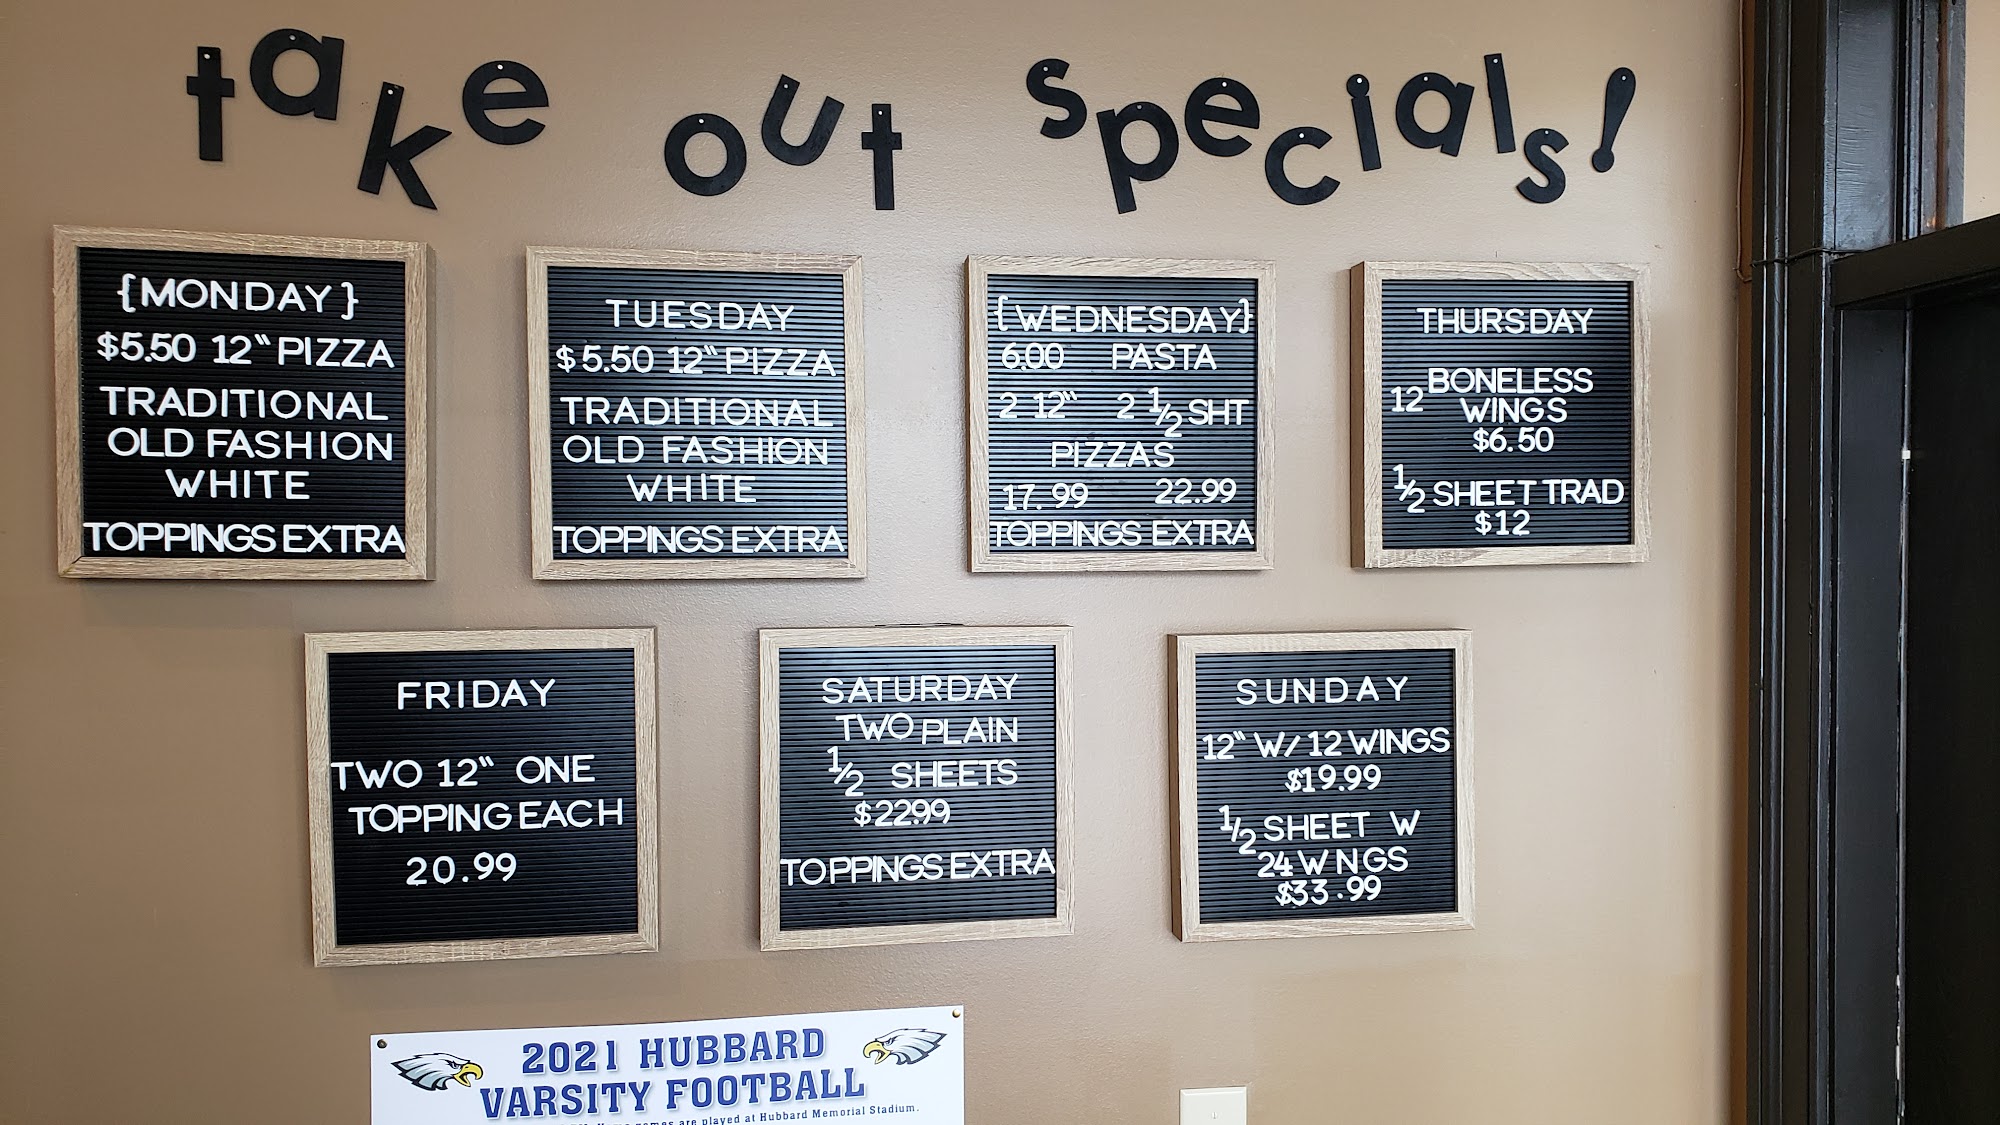 take out specials!
{MONDAY}
$5.50 12" PIZZA
TRADITIONAL
OLD FASHION
WHITE
TOPPINGS EXTRA
TUESDAY
$5.50 12" PIZZA
TRADITIONAL
OLD FASHION
WHITE
TOPPINGS EXTRA
{WEDNESDAY}
6.00 PASTA
2 12" 2 1/2 SHT
PIZZAS
17.99 22.99
TOPPINGS EXTRA
THURSDAY
12 BONELESS
WINGS
$6.50
1/2 SHEET TRAD
$12
FRIDAY
TWO 12" ONE
TOPPING EACH
20.99
SATURDAY
TWO PLAIN
1/2 SHEETS
$2299
TOPPINGS EXTRA
SUNDAY
12" W/ 12 WINGS
$19.99
1/2 SHEET W
24 W NGS
$33.99
2021 HUBBARD
VARSITY FOOTBALL
games are played at Hubbard Memorial Stadium.